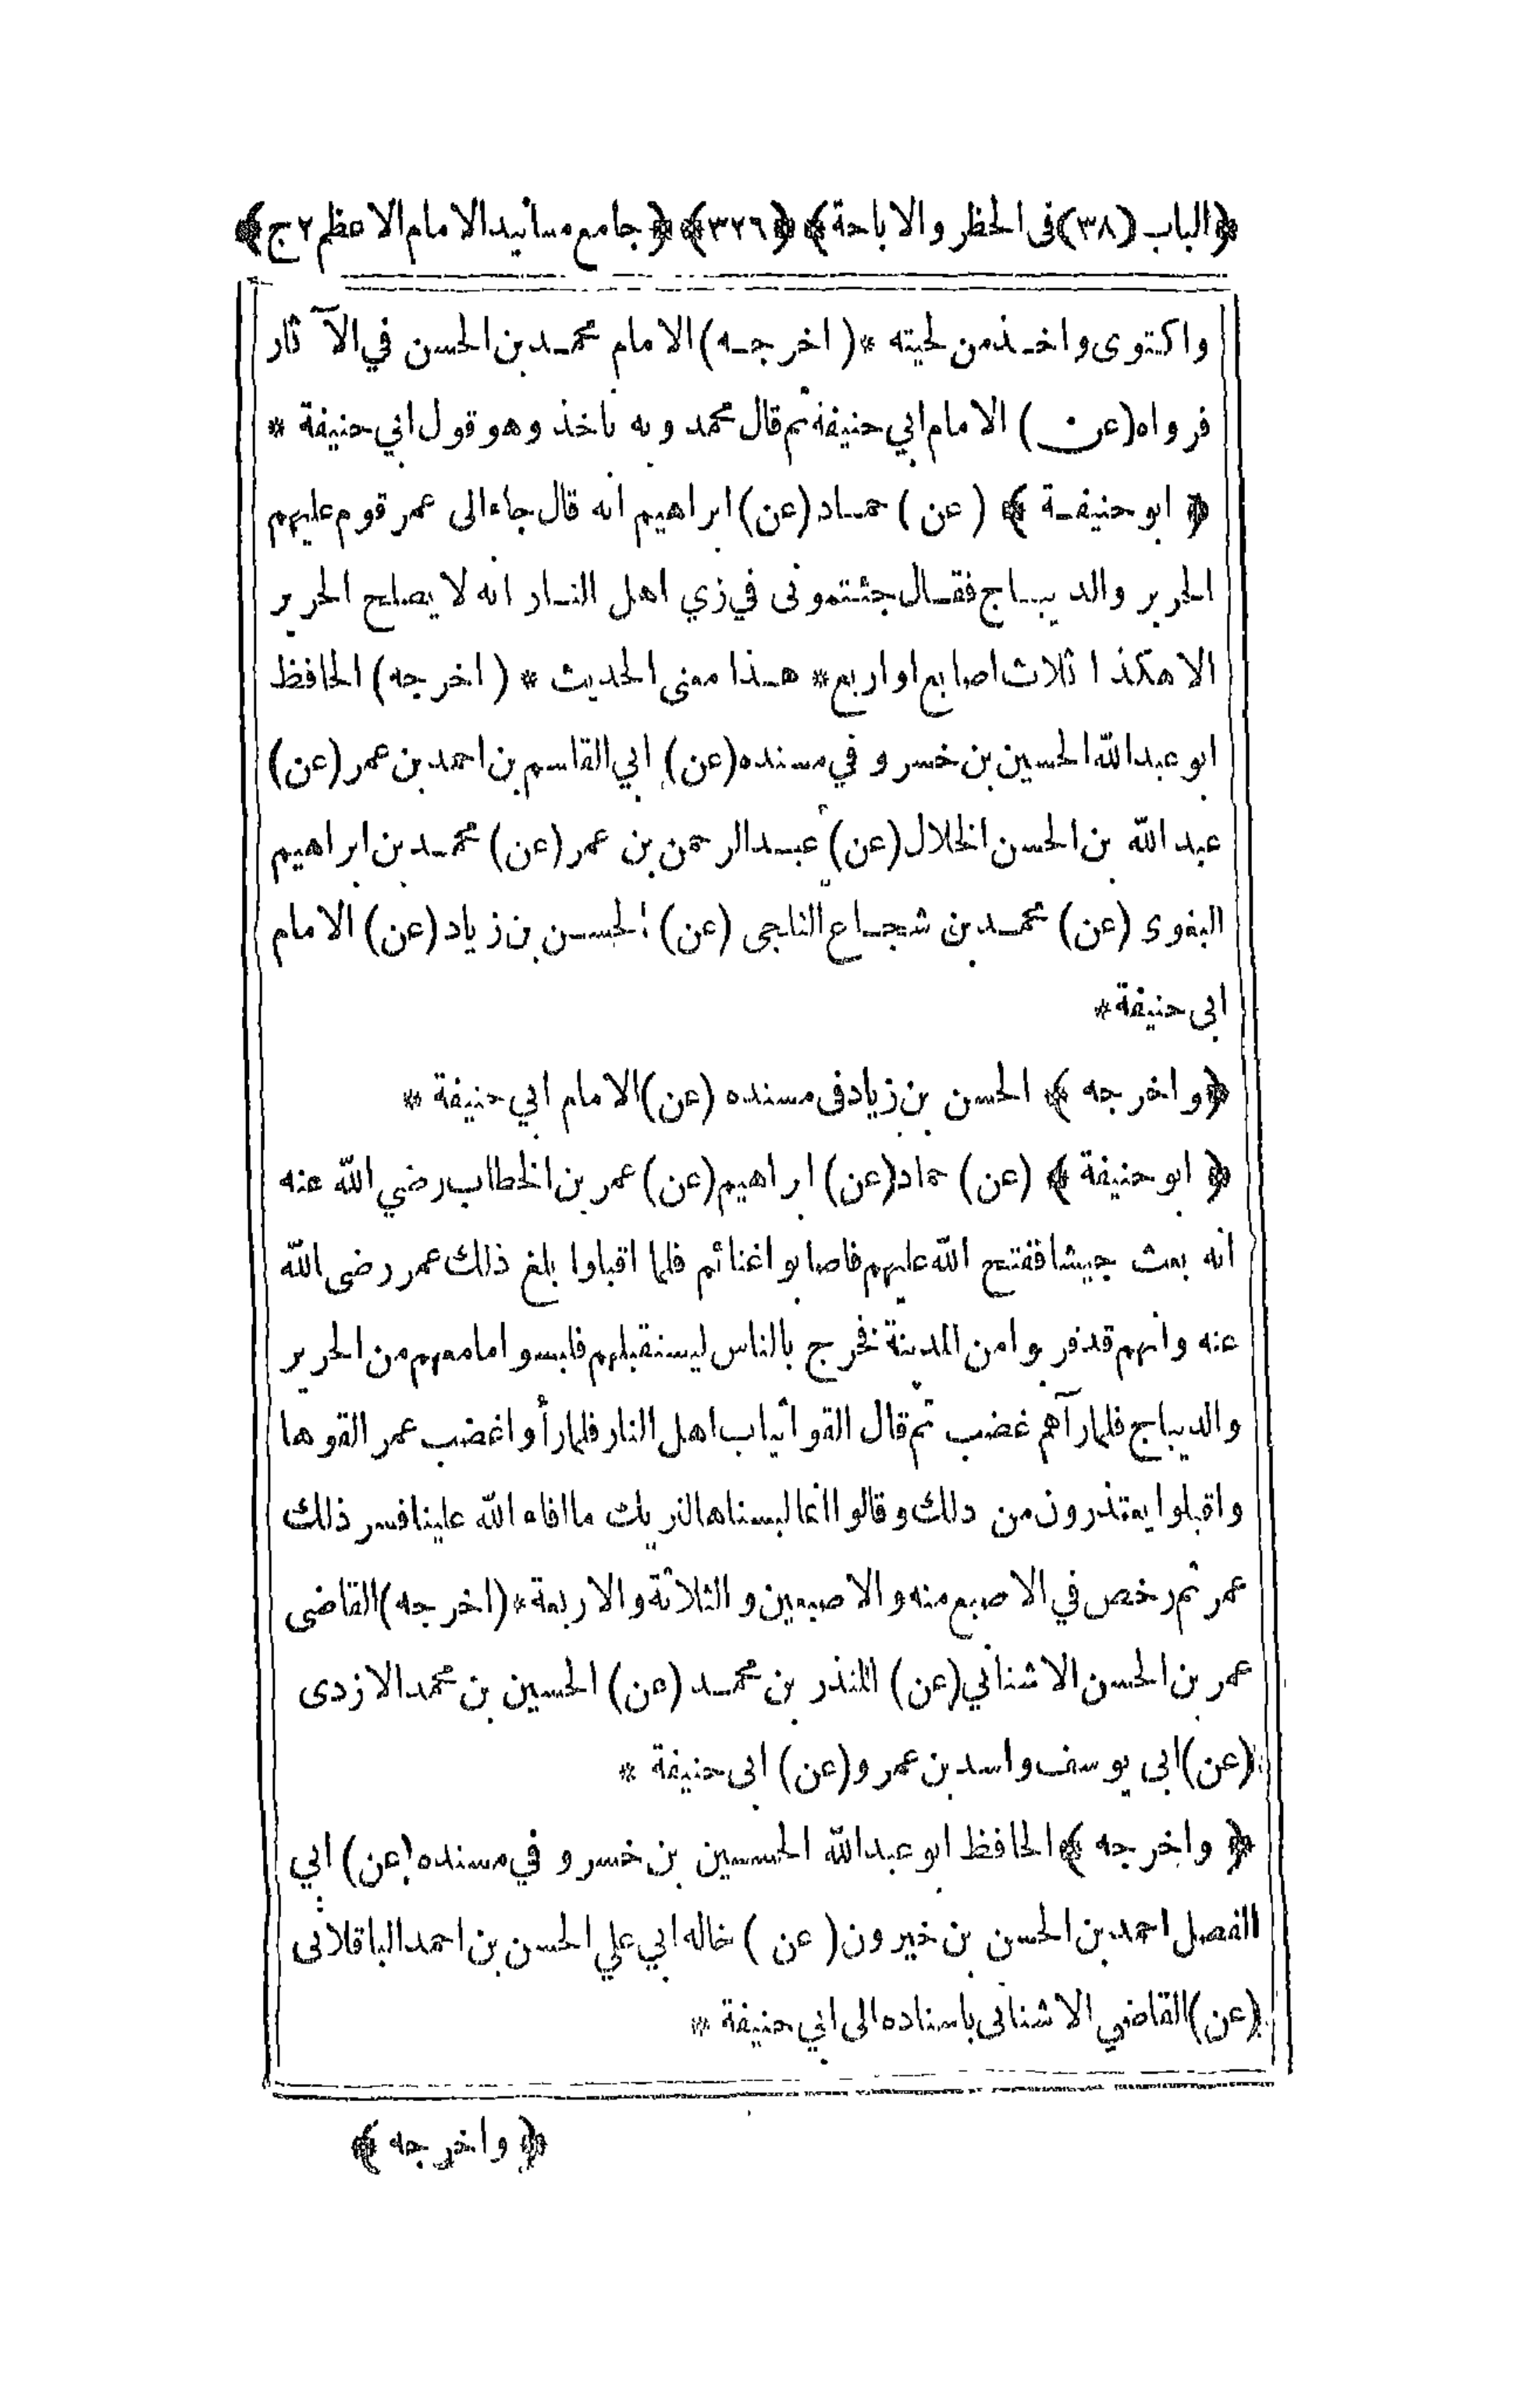 ﴿الباب (٣٨) فى الحظر والاباحة﴾ ﴿٣٢٦﴾ ﴿جامع مسانيد الامام الاعظم ٢ج﴾
واكتوى واخذ من لحيته * (اخرجه) الامام محمد بن الحسن في الآثار
فرواه (عن) الامام ابي حنيفة ثم قال محمد وبه ناخذ وهو قول ابي حنيفة *
﴿ ابو حنيفة ﴾ (عن) حماد (عن) ابراهيم انه قال جاء الى عمر قوم عليهم
الحرير والديباج فقال جئتمونى في زي اهل النار انه لا يصلح الحرير
الا هكذا ثلاث اصابع او اربع * هذا معنى الحديث * (اخرجه) الحافظ
ابو عبدالله الحسين بن خسرو في مسنده (عن) ابي القاسم بن احمد بن عمر (عن)
عبدالله بن الحسن الخلال (عن) عبدالرحمن بن عمر (عن) محمد بن ابراهيم
البغوى (عن) محمد بن شجاع الثلجى (عن) الحسن بن زياد (عن) الامام
ابى حنيفة *
﴿واخرجه﴾ الحسن بن زياد فى مسنده (عن) الامام ابي حنيفة *
﴿ ابو حنيفة ﴾ (عن) حماد (عن) ابراهيم (عن) عمر بن الخطاب رضي الله عنه
انه بعث جيشا ففتح الله عليهم فاصابوا غنائم فلما اقبلوا بلغ ذلك عمر رضى الله
عنه وانهم قد قربوا من المدينة فخرج بالناس ليستقبلهم فلبسوا ما معهم من الحرير
والديباج فلما رآهم غضب ثم قال القوا ثياب اهل النار فلما رأوا غضب عمر القوها
واقبلوا يعتذرون من ذلك وقالوا انما لبسناها لنريك ما افاء الله علينا فسر ذلك
عمر ثم رخص في الاصبع منه والاصبعين والثلاثة والاربعة * (اخرجه) القاضى
عمر بن الحسن الاشناني (عن) المنذر بن محمد (عن) الحسين بن محمد الازدى
(عن) ابى يوسف واسد بن عمرو (عن) ابى حنيفة *
﴿ واخرجه ﴾ الحافظ ابو عبدالله الحسين بن خسرو في مسنده (عن) ابي
الفضل احمد بن الحسن بن خيرون (عن) خاله ابي علي الحسن بن احمد الباقلانى
(عن) القاضي الاشنانى باسناده الى ابي حنيفة *
﴿ واخرجه ﴾